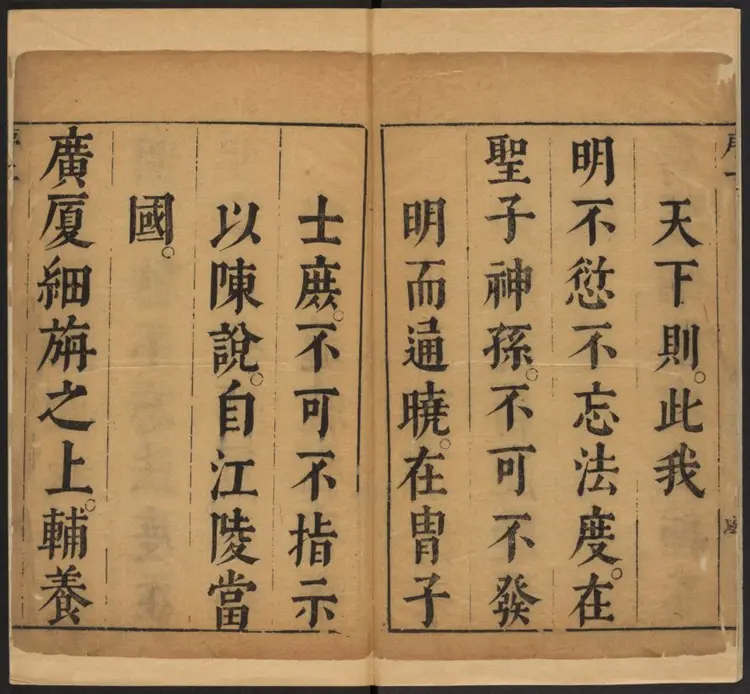 天下則。此我
明不愆不忘法度。在
聖子神孫。不可不發
明而通曉。在胄子
士庶。不可不指示
以陳說。自江陵當
國。
廣厦細旃之上。輔養